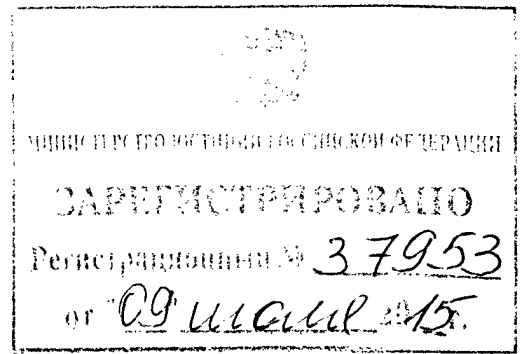 МИНИСТЕРСТВО ЮСТИЦИИ РОССИЙСКОЙ ФЕДЕРАЦИИ
ЗАРЕГИСТРИРОВАНО
Регистрационный № 37953
от "09" июля 2015.